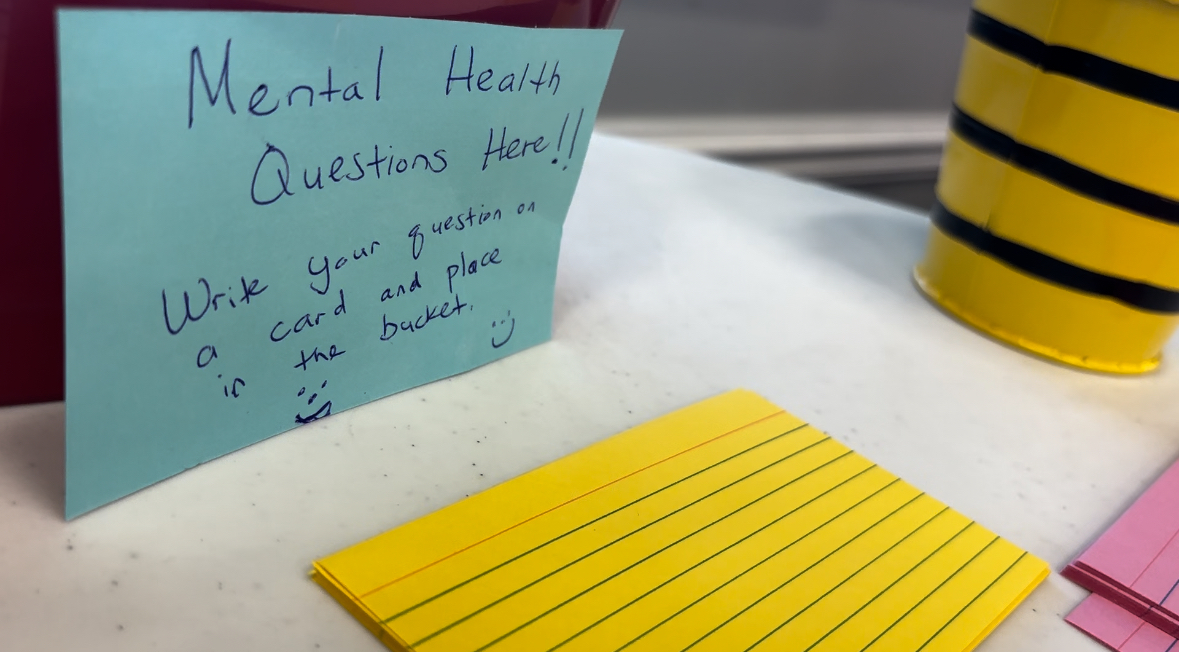 Mental Health
Questions Here!!
Write your question on
a card and place
in the bucket.